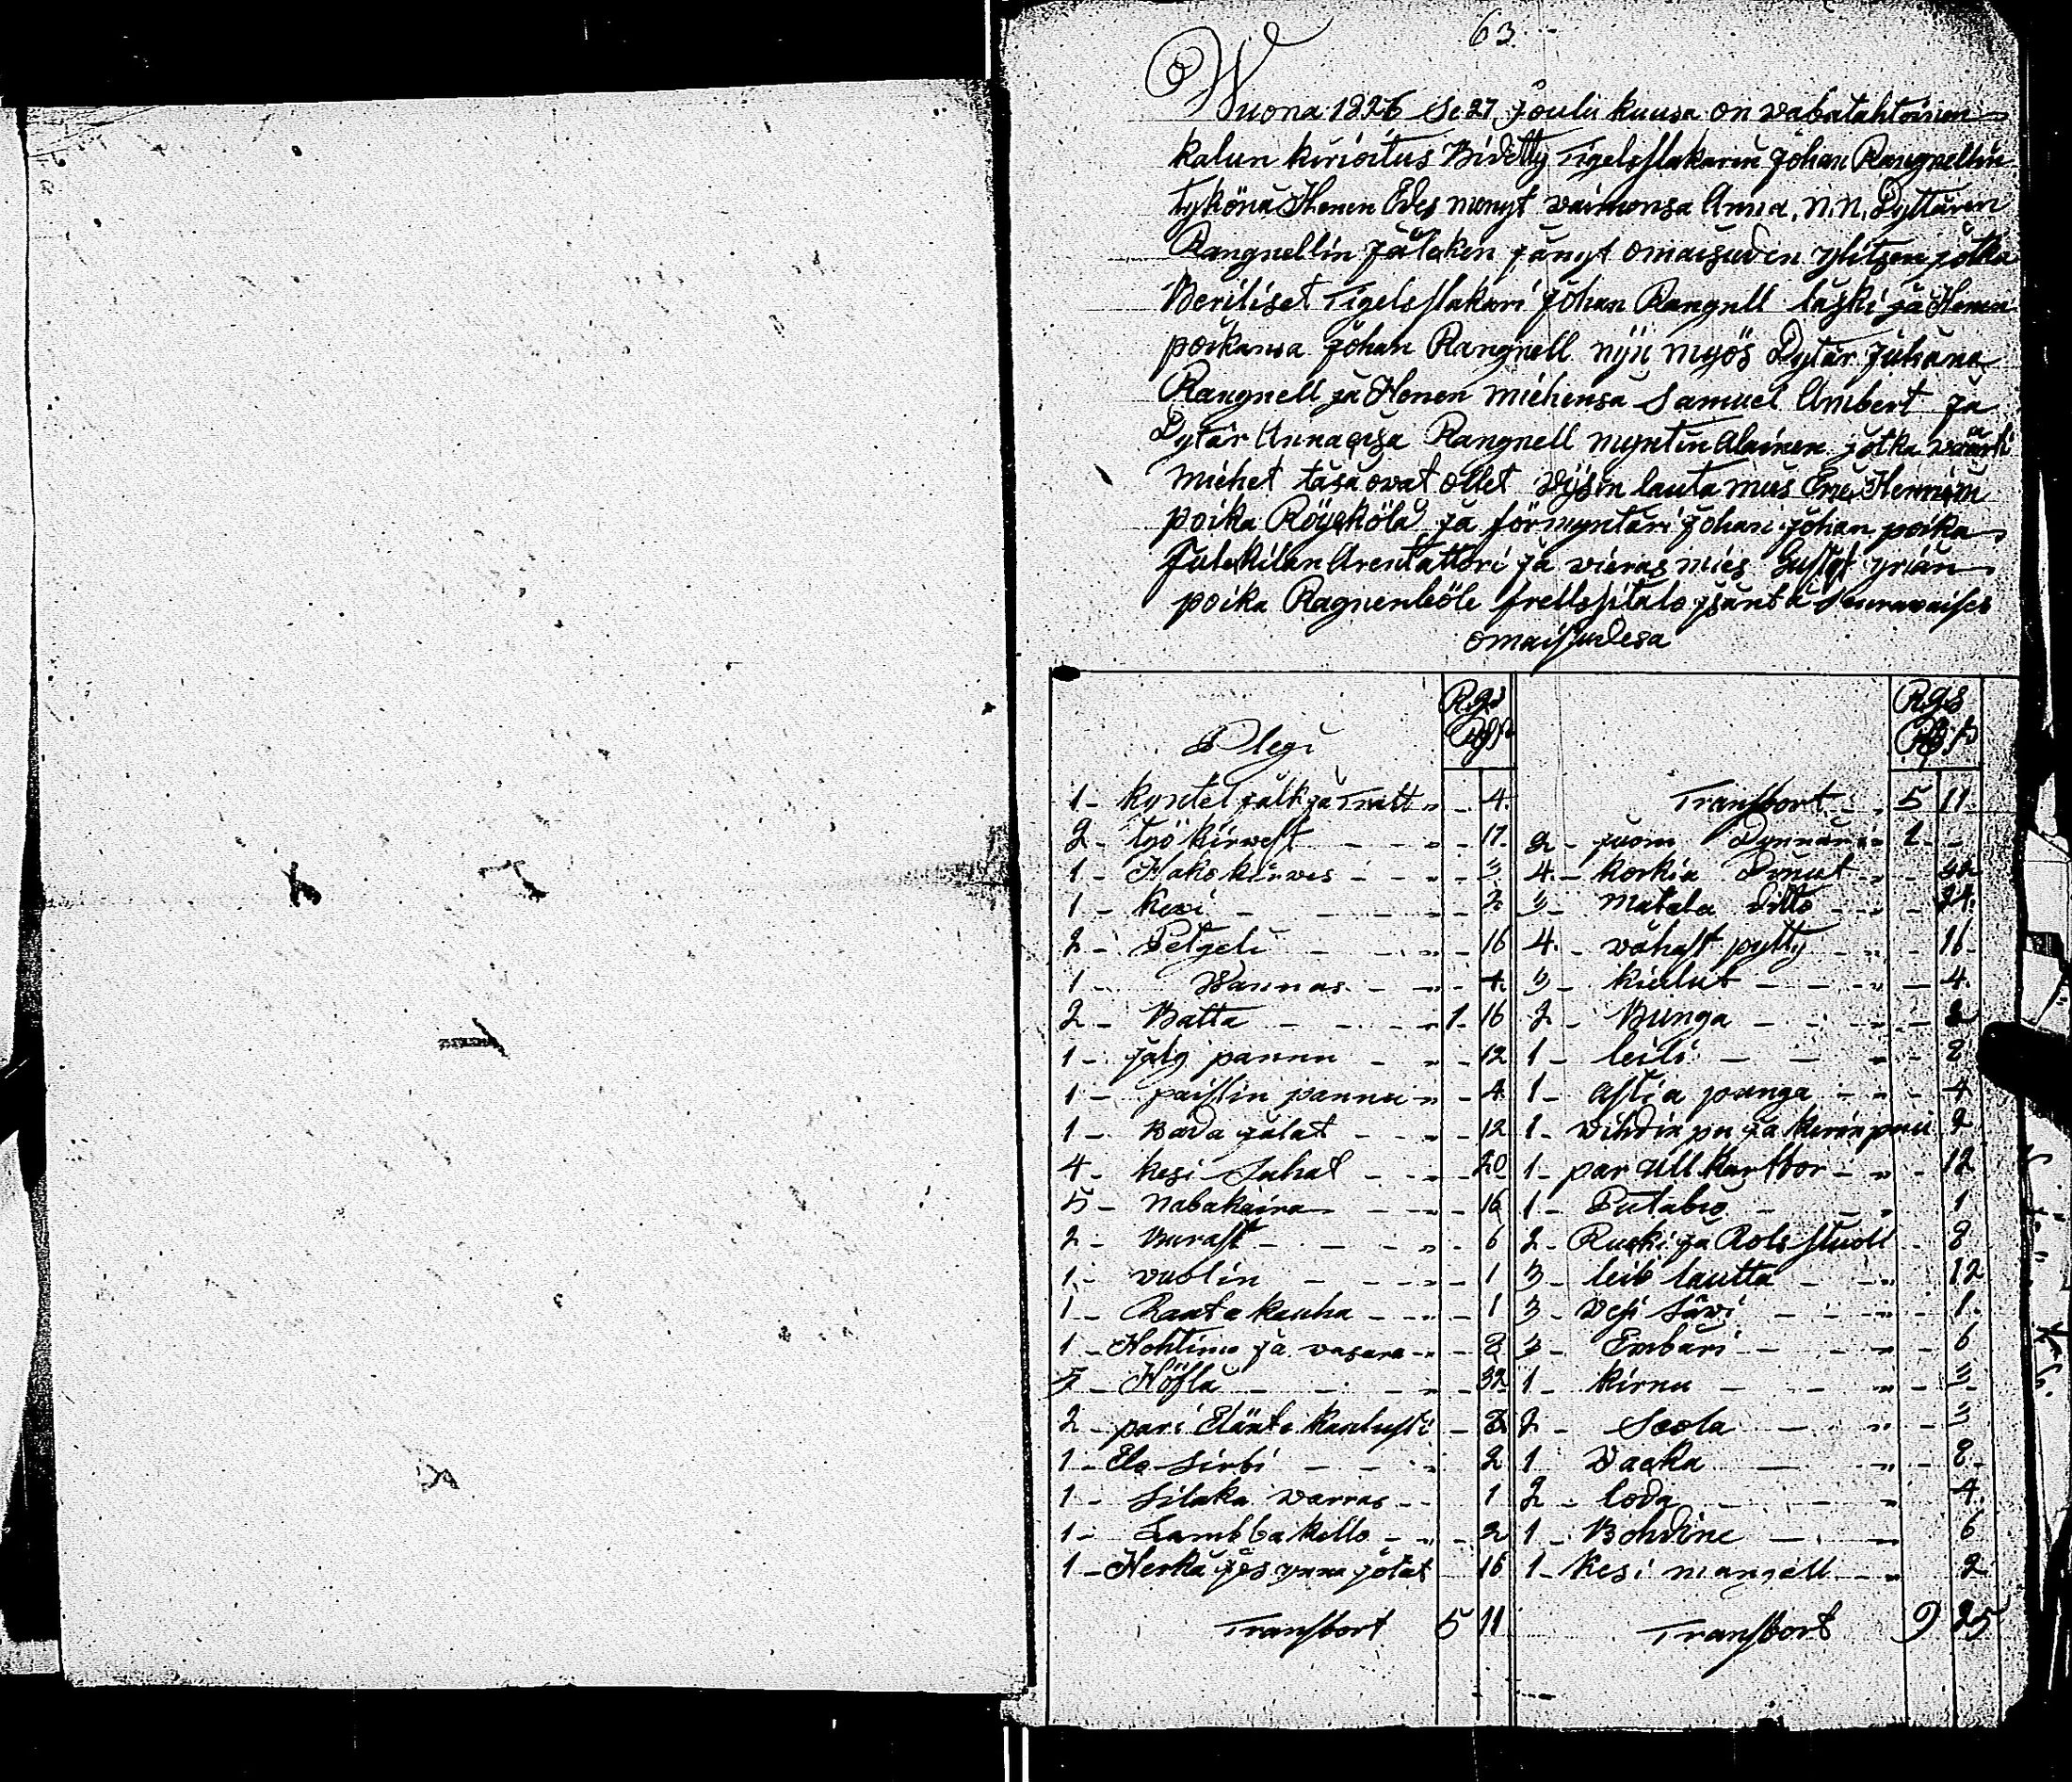 63.
Wuona 1826 Se 27 Joulu kuusa on wabatahtoinen
kalun kirioitus Bidetty Tigelsslakarin Johan Rangnellin
tykönä Henen Edes menyt waimonsa Anna N.N. Dyttären
Rangnellin jäleken jänyt omaisuden ylitsen jotka
Beriliset Tigelsslakari Johan Rangnell läski ja Henen
poikansa Johan Rangnell nyii myös Dytär Juhana
Rangnell ja Henen miehensä Samuel Ambert ja
Dytär Anna Rangnell myntin alainen jotka wäärti
miehet täsä ovat ollet lauta mies Eric Hennrin
poika Röyskölä ja förmyntäri Johan Johan poika
Julekilan Arentattori ja wieras mies Gustaf yriän
poika Ragnenböle frelsitalo jsäntä seurawaises
omaisudesa
Plegi Rgs Rgs
1 - kyntel jalk ja - - 4. Transbort - 5 11
2 - työ kirwest - - 17. 2 - juom Dynnäri 1 -
1 - Hako kirwes - - 3 4 - korkia - 32
1 - kexi - - 2 3 - matala ditto - 24.
2 - Petgeli - - 16 4 - wähäst pytty - 16
1 - Wannas - - 4. 3 - kiulut - - 4.
2 - Batta - 1 16 2 - Bunga - - 2
1 - jalg pannu - - 12 1 - leili - - 8
1 - paistin pannu - - 4 1 - astia punga - - 4
1 - Bada jalat - - 12 1 - wihdin pu ja kerin puu 2
4 - kesi Sahat - - 20 1 - par ull kartbor - - 12
5 - nabakaira - - 16 1 - - 1
2 - Burast - - 6 2 - Rucki ja Rols stuoli - 8
1 - vuolin - - 1 3 - leib lautta - 12
1 - Rauta kauha - - 1 3 - wesi Säwi - - 1.
1 - Hohtimo ja wasara - 8 3 - Embäri - - 6
5 - Höflä - - 32 1 - kirnu - - 3
2 - pari Elänte kaulusti - 8 2 - Seola - - 3
1 - Elo Sirbi - - 2 1 Waaka - - 8
1 - Silaka warras - 1 2 - loda - - 4
1 - Lambba kello - - 2 1 - Bohdine - 6
1 - Herkä jalat 16 1 - kesi manell - 2
Transbort 5 11 Transbort 9 25